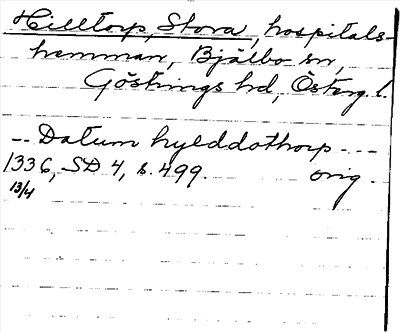 Hilltorp, Stora, hospitals-
hemman, Bjälbo sn,
Göstrings hd, Österg. l.
-- Datum hylddothorp - --
1336, SD 4, s. 499. orig.
13/4